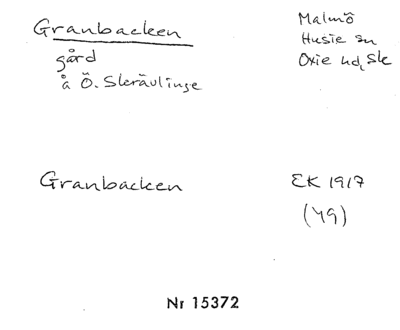 Granbacken
gård
å Ö. Skrävlinge
Malmö
Husie sn
Oxie hd, Sk
Granbacken
EK 1917
(49)
Nr 15372